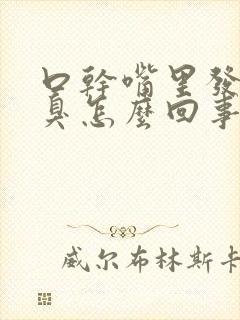 口幹嘴里發
臭怎麽回事
威尔布林斯卡